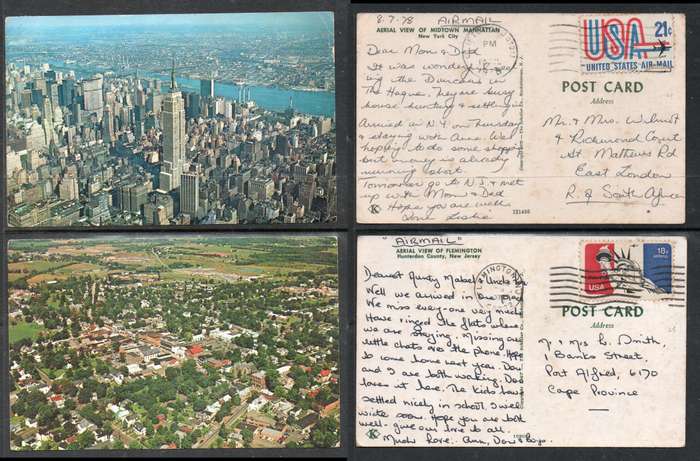 8.7.78 AIRMAIL
AERIAL VIEW OF MIDTOWN MANHATTAN
New York City
PM
Dear Mom & Dad
It was wonderful
ing the Duncans
The Hague. They are busy
house hunting & settling
Arrived in N.Y. on Thursday
& staying with Anne. We
hoping to do some shopping
but money is already
running short.
Tomorrow go to N.J. & met
up with Mom & Dad
Hope you are well
Love
K
121466
USA 21c
UNITED STATES AIR MAIL
POST CARD
Address
Mr. & Mrs.
4 Richmond Court
St. Matthews Rd
East London
R. of South Africa
"AIRMAIL"
AERIAL VIEW OF FLEMINGTON
Hunterdon County, New Jersey
Dearest Aunty Mabel & Uncle
Well we arrived in one piece
We miss everyone very much
Have ringed the flats where
we are staying. Missing our
little chats over the phone. Hope
to come home next year.
and I are both working,
loves it here. The kids have
settled nicely in school. I will
write soon. Hope you are both
well - give our love to all.
Much love. Ann,
K
USA
18c
POST CARD
Address
Mrs
1 Banks Street,
Port Alfred, 6170
Cape Province